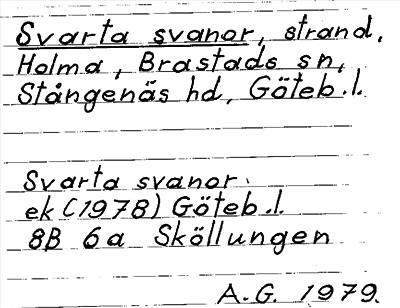 Svarta svanor, strand,
Holma, Brastads sn,
Stångenäs hd, Göteb.l.
Svarta svanor.
ek (1978) Göteb.l.
8B 6a Sköllungen
A.G. 1979.